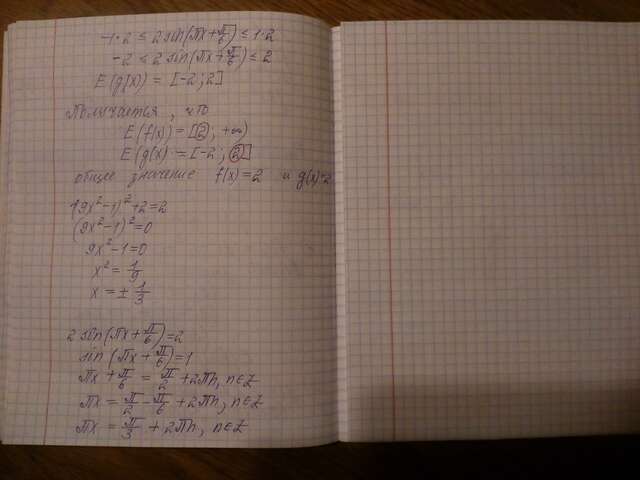 -1·2 ≤ 2 sin(πx+π/6) ≤ 1·2
-2 ≤ 2 sin(πx+π/6) ≤ 2
E(g(x)) = [-2; 2]
Получается, что
E(f(x)) = [2; +∞)
E(g(x) = [-2; 2]
общее значение f(x)=2 и g(x)=2
(9x²-1)²+2=2
(9x²-1)²=0
9x²-1=0
x² = 1/9
x = ± 1/3
2 sin(πx+π/6)=2
sin(πx+π/6)=1
πx + π/6 = π/2 + 2πn, n∈Z
πx = π/2 - π/6 + 2πn, n∈Z
πx = π/3 + 2πn, n∈Z